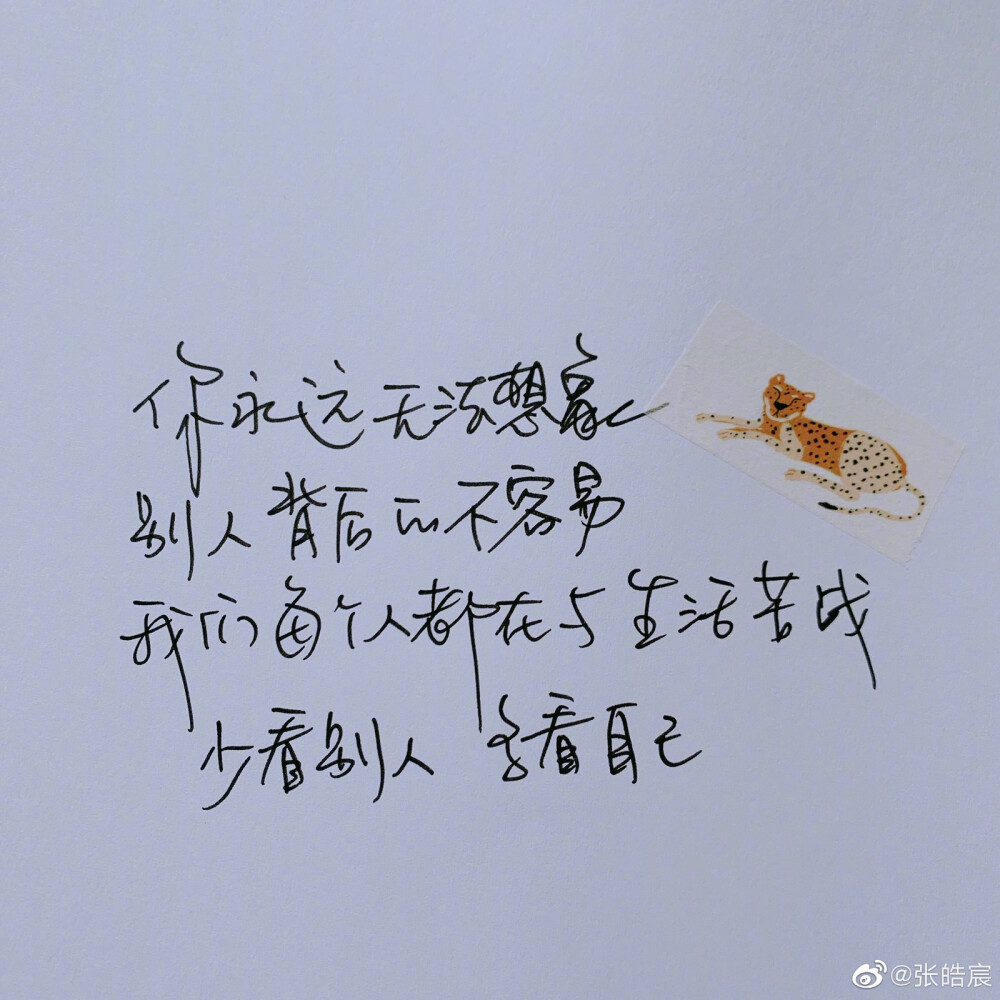 你永远无法想象
别人背后的不容易
我们每个人都在与生活苦战
少看别人 多看自己
@张皓宸